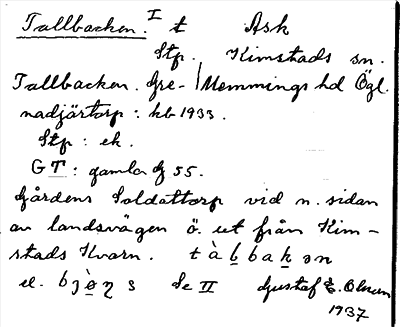 Tallbacken. I t Ask
Stp. Kimstads sn.
Tallbacken. Gre- Memmings hd Ögl.
nadjärtorp : kb 1933.
Stp : ek.
GT : gamla dg 55.
Gårdens Soldattorp vid n. sidan
av landsvägen ö. ut från Kim-
stads Kvarn. t à b b a k ə n
el. b j ò n s Se II Gustaf E. Olsson
1937